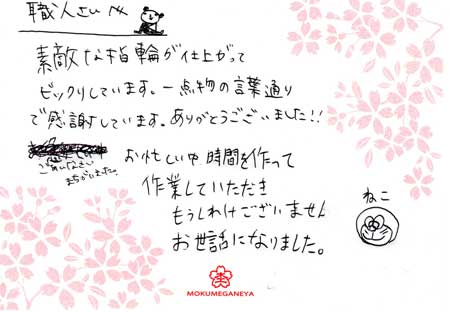 職人さんへ
素敵な指輪が仕上がって
ビックリしています。一点物の言葉通り
で感謝しています。ありがとうございました!!
ごめんなさい
まちがえました。
お忙しい中 時間を作って
作業していただき
もうしわけございません
お世話になりました。
ねこ
MOKUMEGANEYA